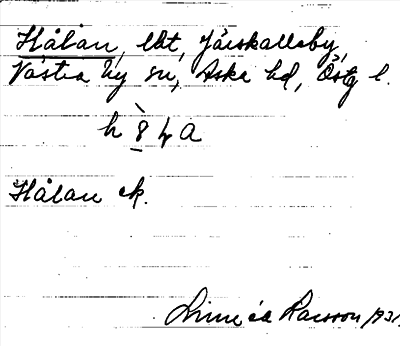 Hålan, lht, Järskalleby,
Västra Ny sn, Aska hd, Östg l.
Hålan ek.
Linnéa Larsson 1931.